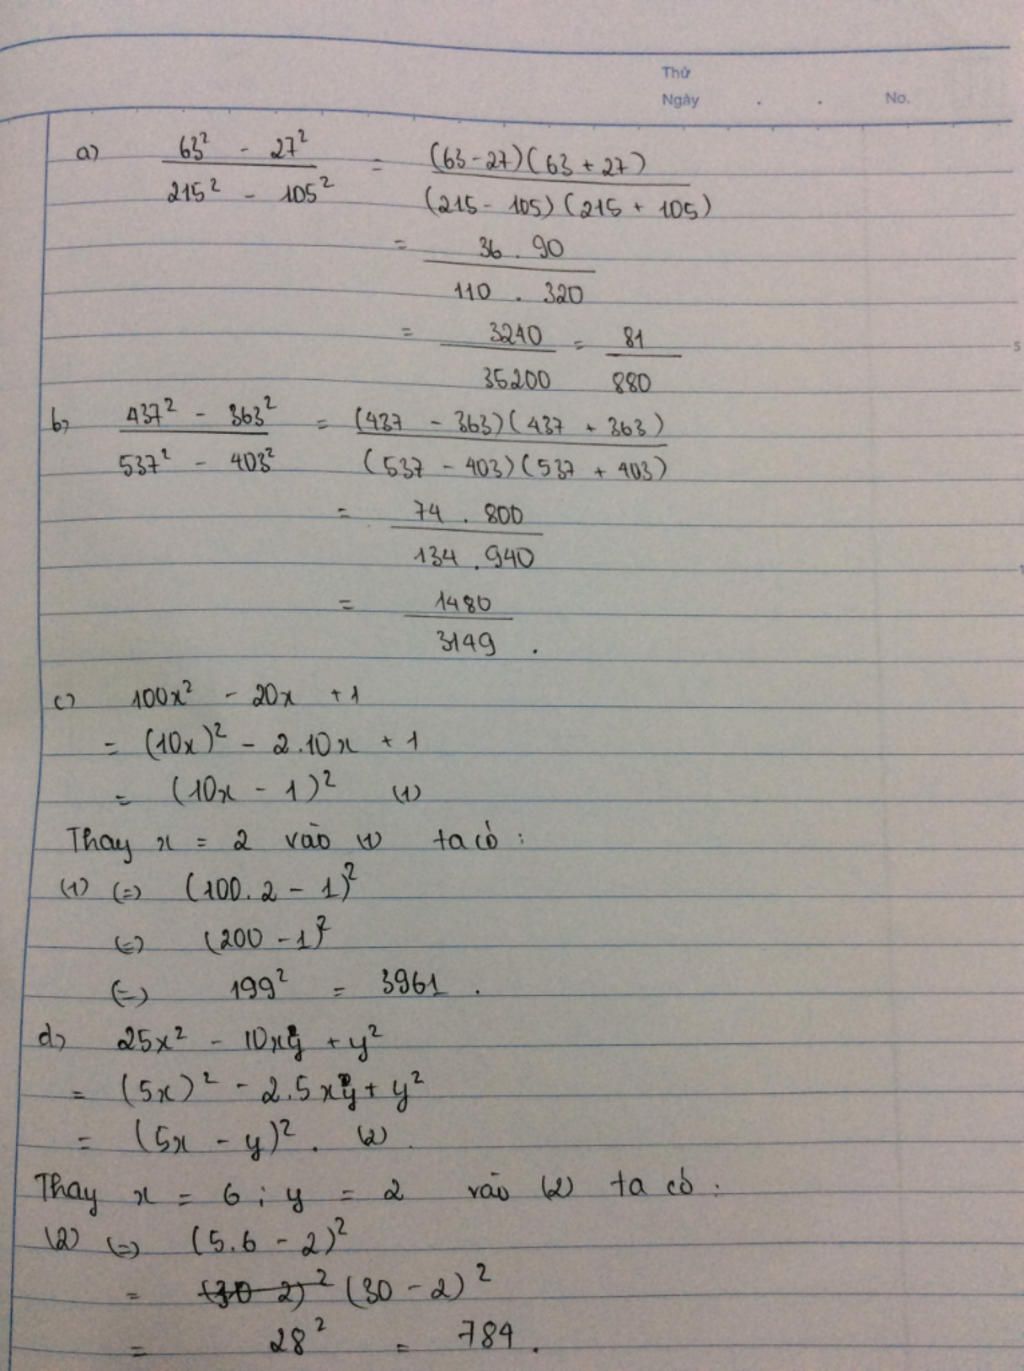 Thứ
Ngày . . No.
a) (63² - 27²)/(215² - 105²) = ((63-27)(63+27))/((215-105)(215+105))
= (36.90)/(110.320)
= 3240/35200 = 81/880
5
b) (437² - 363²)/(537² - 403²) = ((437 - 363)(437 + 363))/((537 - 403)(537 + 403))
= (74.800)/(134.940)
= 1480/3149.
c) 100x² - 20x + 1
= (10x)² - 2.10x + 1
= (10x - 1)² (1)
Thay x = 2 vào (1) ta có:
(1) (=) (100.2 - 1)²
(=) (200 - 1)²
(=) 199² = 3961.
d) 25x² - 10xy + y²
= (5x)² - 2.5xy + y²
= (5x - y)². (2)
Thay x = 6; y = 2 vào (2) ta có:
(2) (=) (5.6 - 2)²
= (30 2)² (30 - 2)²
= 28² = 784.